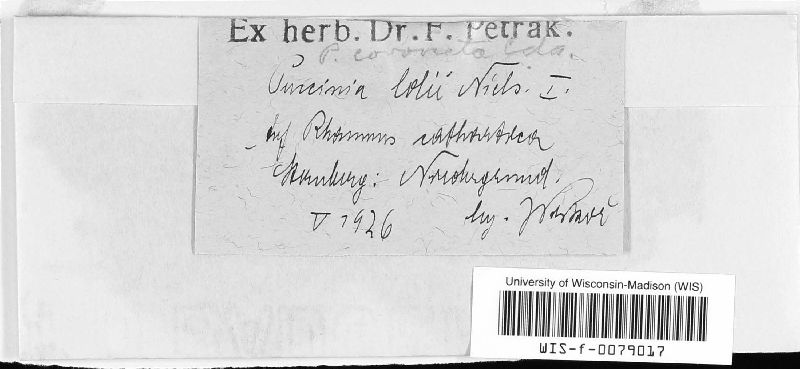 Ex herb. Dr. F. Petrak.
P. coronata Cda.
Puccinia lolii Niels. I.
Auf Rhamnus cathartica
Sternberg: Niedergrund.
V 1926 leg.
University of Wisconsin-Madison (WIS)
WIS-f-0079017